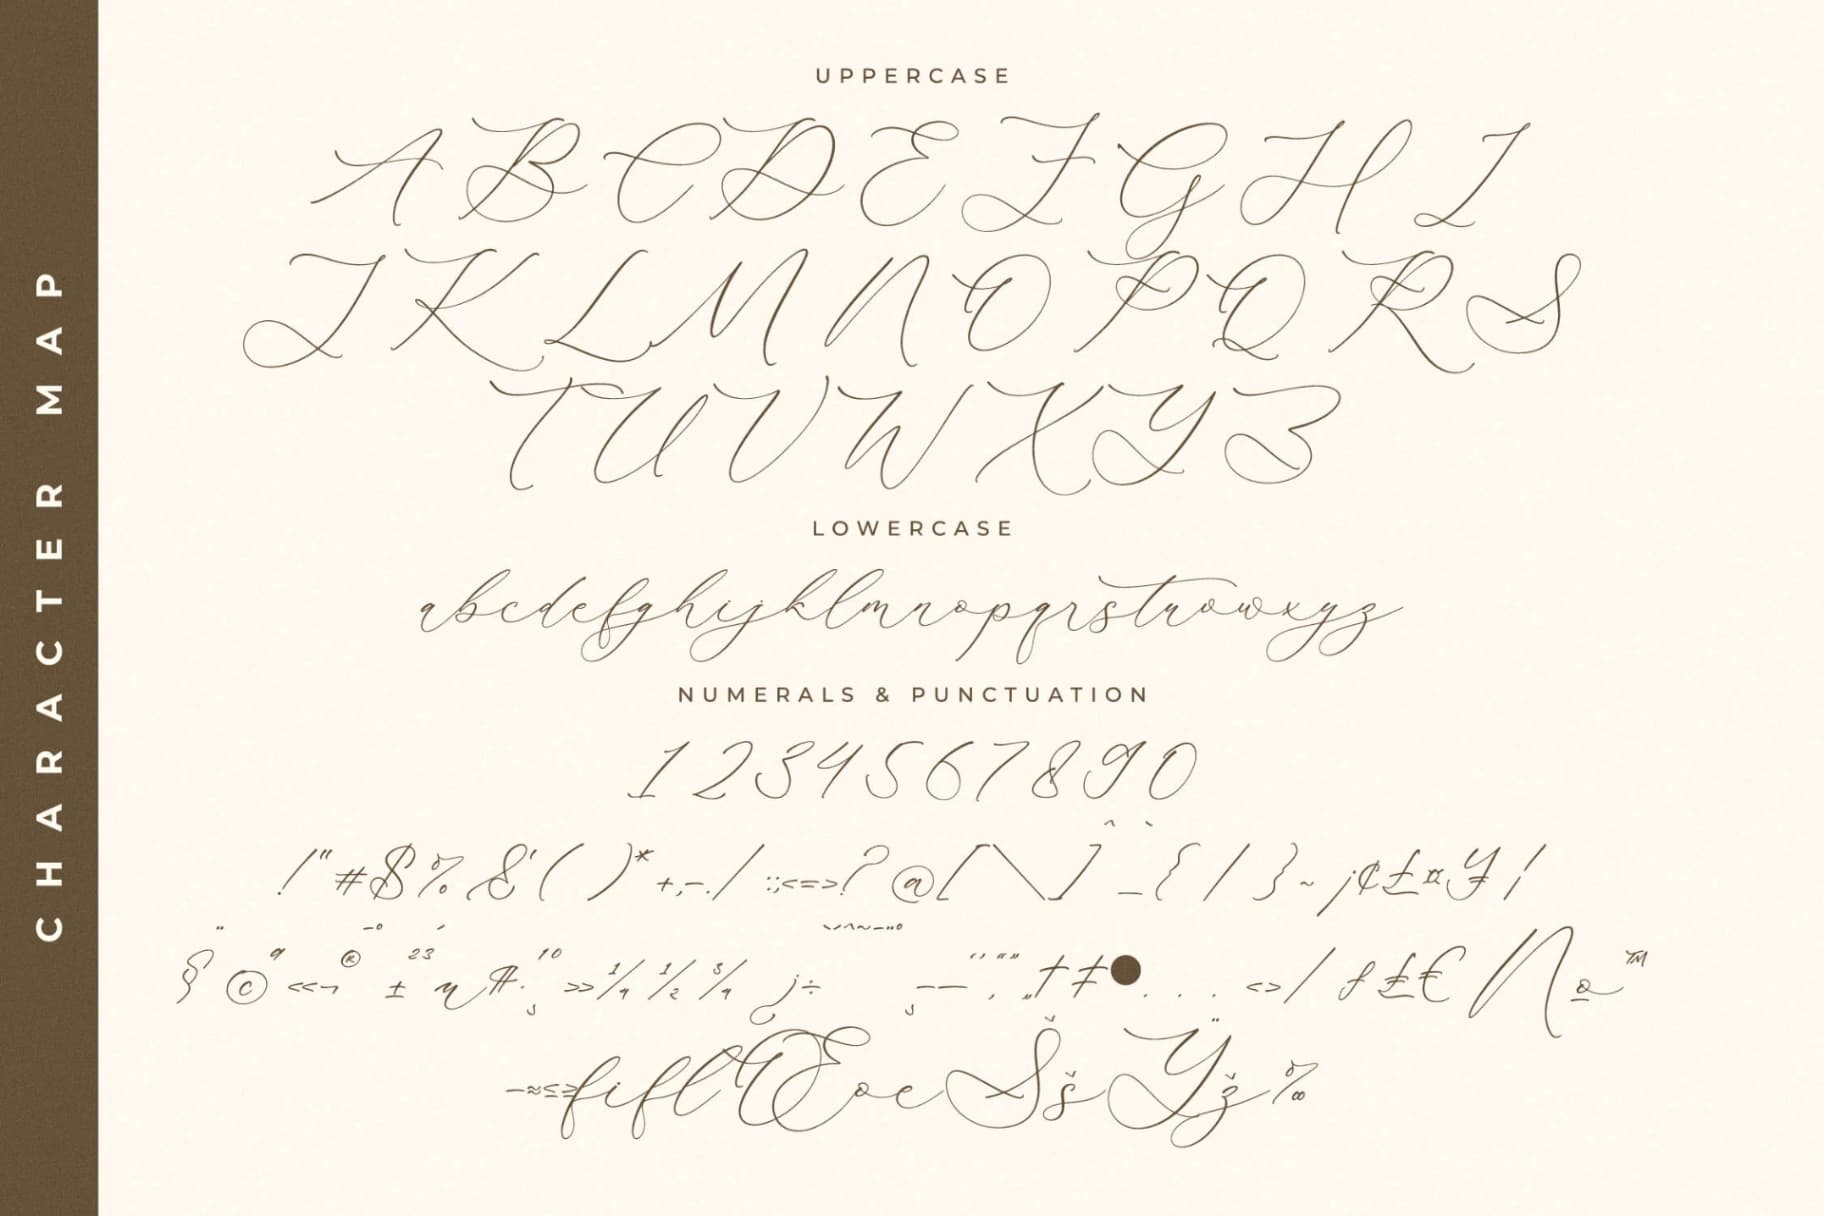 CHARACTER MAP
UPPERCASE
ABCDEFGHI
JKLMNOPQRS
TUVWXYZ
LOWERCASE
abcdefghijklmnopqrstuvwxyz
NUMERALS & PUNCTUATION
1234567890
!"#$%&'()*+,-./:;<=>?@[\]^_`{|}~¡¢£¤¥¦
§¨©ª«¬®¯°±²³´µ¶·¸¹º»¼½¾¿÷
–—‘’‚“”„†‡•…‹›⁄ƒ₤€№™
−≈≤≥fiflŒœŠšŸž‰